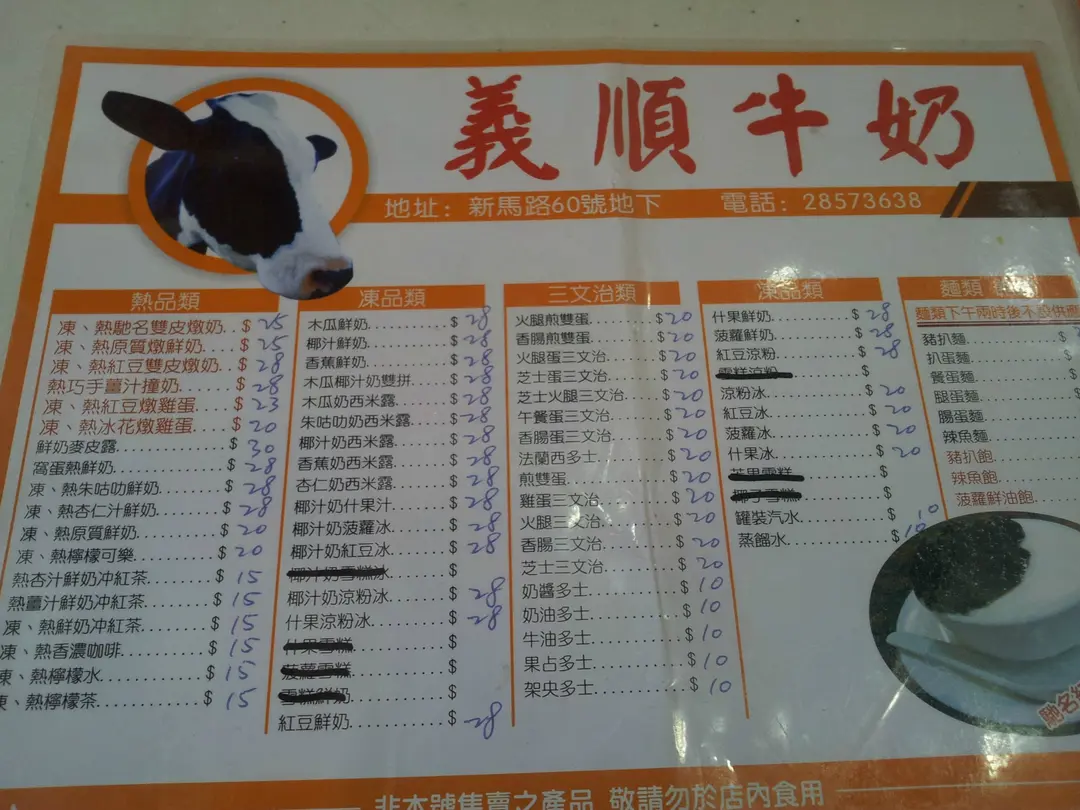 義順牛奶
地址：新馬路60號地下 電話：28573638
熱品類
凍、熱馳名雙皮燉奶..$ 25
凍、熱原質燉鮮奶....$ 25
凍、熱紅豆雙皮燉奶..$ 28
熱巧手薑汁撞奶.....$ 28
凍、熱紅豆燉雞蛋....$ 23
凍、熱冰花燉雞蛋....$ 20
鮮奶麥皮露..........$ 30
窩蛋熱鮮奶..........$ 28
凍、熱朱咕叻鮮奶......$ 28
凍、熱杏仁汁鮮奶......$ 28
凍、熱原質鮮奶........$ 20
凍、熱檸檬可樂........$ 20
熱杏汁鮮奶冲紅茶......$ 15
熱薑汁鮮奶冲紅茶......$ 15
凍、熱鮮奶冲紅茶......$ 15
凍、熱香濃咖啡........$ 15
凍、熱檸檬水..........$ 15
凍、熱檸檬茶..........$ 15
凍品類
木瓜鮮奶..........$ 28
椰汁鮮奶..........$ 28
香蕉鮮奶..........$ 28
木瓜椰汁奶雙拼......$ 28
木瓜奶西米露.......$ 28
朱咕叻奶西米露......$ 28
椰汁奶西米露.......$ 28
香蕉奶西米露.......$ 28
杏仁奶西米露.......$ 28
椰汁奶什果汁.......$ 28
椰汁奶菠蘿冰.......$ 28
椰汁奶紅豆冰.......$ 28
椰汁奶雪糕冰.......$
椰汁奶涼粉冰.......$ 28
什果涼粉冰.........$ 28
什果雪糕..........$
菠蘿雪糕..........$
雪糕鮮奶..........$
紅豆鮮奶..........$ 28
三文治類
火腿煎雙蛋........$ 20
香腸煎雙蛋........$ 20
火腿蛋三文治.......$ 20
芝士蛋三文治.......$ 20
芝士火腿三文治......$ 20
午餐蛋三文治.......$ 20
香腸蛋三文治.......$ 20
法蘭西多士.........$ 20
煎雙蛋............$ 20
雞蛋三文治.........$ 20
火腿三文治.........$ 20
香腸三文治.........$ 20
芝士三文治.........$ 20
奶醬多士..........$ 10
奶油多士..........$ 10
牛油多士..........$ 10
果占多士..........$ 10
架央多士..........$ 10
凍品類
什果鮮奶..........$ 28
菠蘿鮮奶..........$ 28
紅豆涼粉..........$ 28
雪糕涼粉..........$
涼粉冰............$ 20
紅豆冰............$ 20
菠蘿冰............$ 20
什果冰............$ 20
芒果雪糕..........$
椰子雪糕..........$
罐裝汽水..........$ 10
蒸餾水............$ 10
麵類
麵類下午兩時後不設供應
豬扒麵
扒蛋麵
餐蛋麵
腿蛋麵
腸蛋麵
辣魚麵
豬扒飽
辣魚飽
菠蘿鮮油飽
馳名
非本號售賣之產品 敬請勿於店內食用